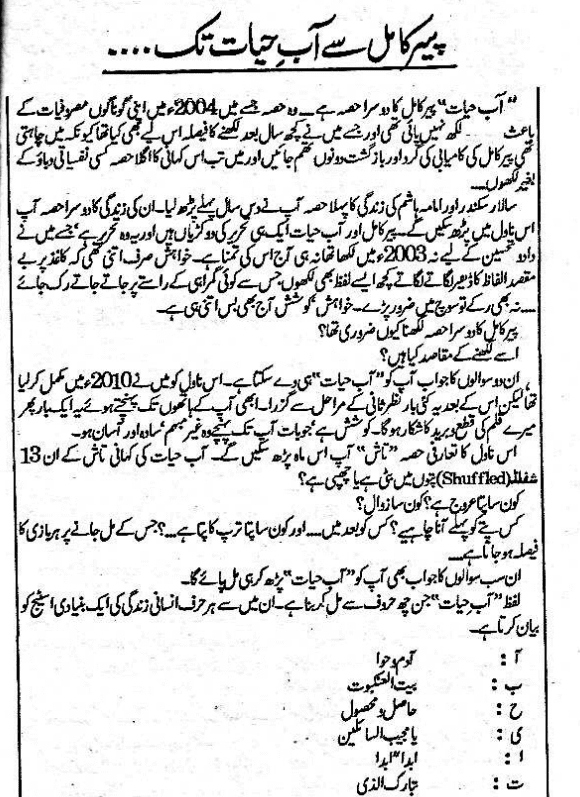 پیرِ کامل سے آبِ حیات تک ....
"آب حیات" پیر کامل کا دوسرا حصہ ہے۔ وہ حصہ جسے میں 2004ء میں اپنی گوناگوں مصروفیات کے
باعث لکھ نہیں پائی تھی اور جسے میں نے کچھ سال بعد لکھنے کا فیصلہ اس لیے بھی کیا تھا کیونکہ میں چاہتی
تھی پیر کامل کی کامیابی کی گرد اور بازگشت دونوں تھم جائیں اور میں تب اس کہانی کا اگلا حصہ کسی نفسیاتی دباؤ کے
بغیر لکھوں....
سالار سکندر اور امامہ ہاشم کی زندگی کا پہلا حصہ آپ نے دس سال پہلے پڑھ لیا۔ ان کی زندگی کا دوسرا حصہ آپ
اس ناول میں پڑھ سکیں گے۔ پیر کامل اور آب حیات ایک ہی تحریر کی دو کڑیاں ہیں اور یہ وہ تحریر ہے' جسے میں نے
داد و تحسین کے لیے نہ 2003ء میں لکھا تھا نہ ہی آج اس کی تمنا ہے۔ خواہش صرف اتنی تھی کہ کاغذ پر بے
مقصد الفاظ کا ڈھیر لگاتے لگاتے کچھ ایسے لفظ بھی لکھوں، جس سے کوئی گمراہی کے راستے پر جاتے جاتے رک جائے
.... نہ بھی رکے تو سوچ میں ضرور پڑے۔ خواہش' کوشش آج بھی بس اتنی ہی ہے۔
پیر کامل کا دوسرا حصہ لکھنا کیوں ضروری تھا؟
اسے لکھنے کے مقاصد کیا ہیں؟
ان دو سوالوں کا جواب آپ کو "آب حیات" ہی دے سکتا ہے۔ اس ناول کو میں نے 2010ء میں مکمل کر لیا
تھا لیکن اس کے بعد یہ کئی بار نظر ثانی کے مراحل سے گزرا۔ ابھی آپ کے ہاتھوں تک پہنچتے ہوئے یہ ایک بار پھر
میرے قلم کی قطع و برید کا شکار ہو گا۔ کوشش ہے' جو بات آپ تک پہنچے وہ غیر مبہم' سادہ اور آسان ہو۔
اس ناول کا تعارفی حصہ "تاش" آپ اس ماہ پڑھ سکیں گے۔ آب حیات کی کہانی تاش کے ان 13
شفلڈ (Shuffled) پتوں میں بٹی ہے یا چھپی ہے؟
کون سا پتا عروج ہے؟ کون سا زوال؟
کس پتے کو پہلے آنا چاہیے؟ کس کو بعد میں.... اور کون سا پتا ترپ کا پتا ہے....؟ جس کے مل جانے پر ہر بازی کا
فیصلہ ہو جاتا ہے....
ان سب سوالوں کا جواب بھی آپ کو "آب حیات" پڑھ کر ہی مل پائے گا۔
لفظ "آب حیات" جن چھ حروف سے مل کر بنا ہے۔ ان میں سے ہر حرف انسانی زندگی کی ایک بنیادی اسٹیج کو
بیان کرتا ہے۔
آ : آدم و حوا
ب : بیت العنکبوت
ح : حاصل و محصول
ی : یا مجیب السائلین
ا : ابدا" ابدا
ت : تبارک الذی